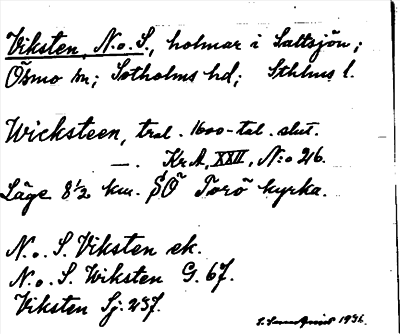 Viksten, N. o. S., holmar i Saltsjön;
Ösmo sn; Sotholms hd; Sthlms l.
Wicksteen, tral. 1600-tal. slut.
—. Kr.A, XXII, N:o 26.
Läge 8 1/2 km. SÖ Torö kyrka.
N. o. S. Viksten ek.
N. o. S. Wiksten G. 67.
Viksten Sj: 237.
1936.